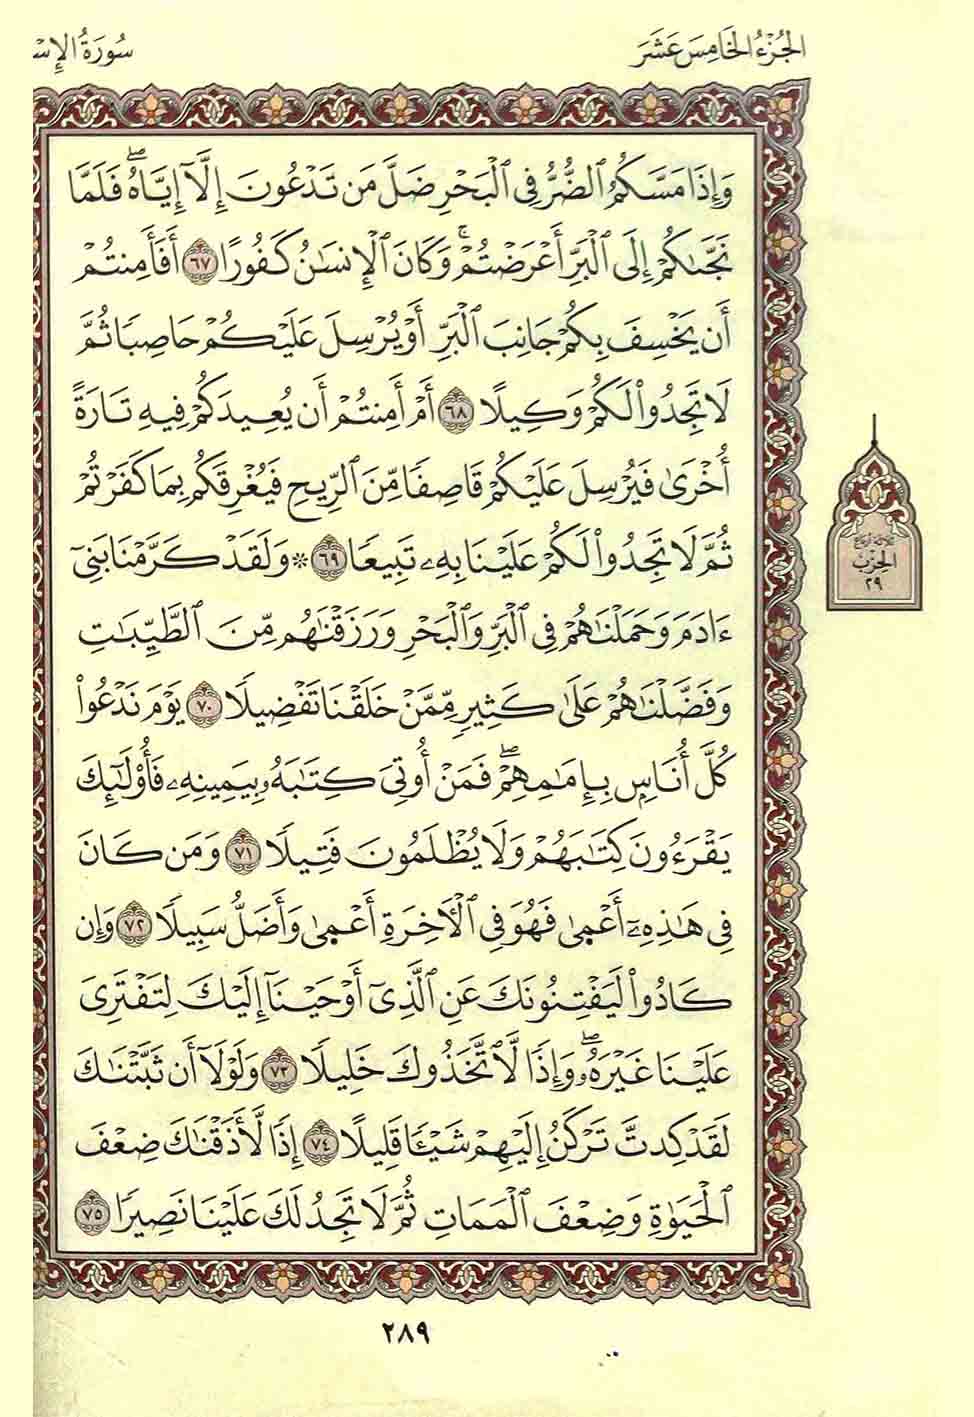 الجُزْءُ الخَامِسَ عَشَرَ
سُورَةُ الإِسْ
وَإِذَا مَسَّكُمُ ٱلضُّرُّ فِى ٱلْبَحْرِ ضَلَّ مَن تَدْعُونَ إِلَّآ إِيَّاهُ ۖ فَلَمَّا
نَجَّىٰكُمْ إِلَى ٱلْبَرِّ أَعْرَضْتُمْ ۚ وَكَانَ ٱلْإِنسَـٰنُ كَفُورًا ٦٧ أَفَأَمِنتُمْ
أَن يَخْسِفَ بِكُمْ جَانِبَ ٱلْبَرِّ أَوْ يُرْسِلَ عَلَيْكُمْ حَاصِبًا ثُمَّ
لَا تَجِدُوا۟ لَكُمْ وَكِيلًا ٦٨ أَمْ أَمِنتُمْ أَن يُعِيدَكُمْ فِيهِ تَارَةً
أُخْرَىٰ فَيُرْسِلَ عَلَيْكُمْ قَاصِفًا مِّنَ ٱلرِّيحِ فَيُغْرِقَكُم بِمَا كَفَرْتُمْ
ثُمَّ لَا تَجِدُوا۟ لَكُمْ عَلَيْنَا بِهِۦ تَبِيعًا ٦٩ * وَلَقَدْ كَرَّمْنَا بَنِىٓ
ءَادَمَ وَحَمَلْنَـٰهُمْ فِى ٱلْبَرِّ وَٱلْبَحْرِ وَرَزَقْنَـٰهُم مِّنَ ٱلطَّيِّبَـٰتِ
وَفَضَّلْنَـٰهُمْ عَلَىٰ كَثِيرٍ مِّمَّنْ خَلَقْنَا تَفْضِيلًا ٧٠ يَوْمَ نَدْعُوا۟
كُلَّ أُنَاسٍۭ بِإِمَـٰمِهِمْ ۖ فَمَنْ أُوتِىَ كِتَـٰبَهُۥ بِيَمِينِهِۦ فَأُو۟لَـٰٓئِكَ
يَقْرَءُونَ كِتَـٰبَهُمْ وَلَا يُظْلَمُونَ فَتِيلًا ٧١ وَمَن كَانَ
فِى هَـٰذِهِۦٓ أَعْمَىٰ فَهُوَ فِى ٱلْـَٔاخِرَةِ أَعْمَىٰ وَأَضَلُّ سَبِيلًا ٧٢ وَإِن
كَادُوا۟ لَيَفْتِنُونَكَ عَنِ ٱلَّذِىٓ أَوْحَيْنَآ إِلَيْكَ لِتَفْتَرِىَ
عَلَيْنَا غَيْرَهُۥ ۖ وَإِذًا لَّٱتَّخَذُوكَ خَلِيلًا ٧٣ وَلَوْلَآ أَن ثَبَّتْنَـٰكَ
لَقَدْ كِدتَّ تَرْكَنُ إِلَيْهِمْ شَيْـًٔا قَلِيلًا ٧٤ إِذًا لَّأَذَقْنَـٰكَ ضِعْفَ
ٱلْحَيَوٰةِ وَضِعْفَ ٱلْمَمَاتِ ثُمَّ لَا تَجِدُ لَكَ عَلَيْنَا نَصِيرًا ٧٥
الحِزْبِ
٢٩
٢٨٩